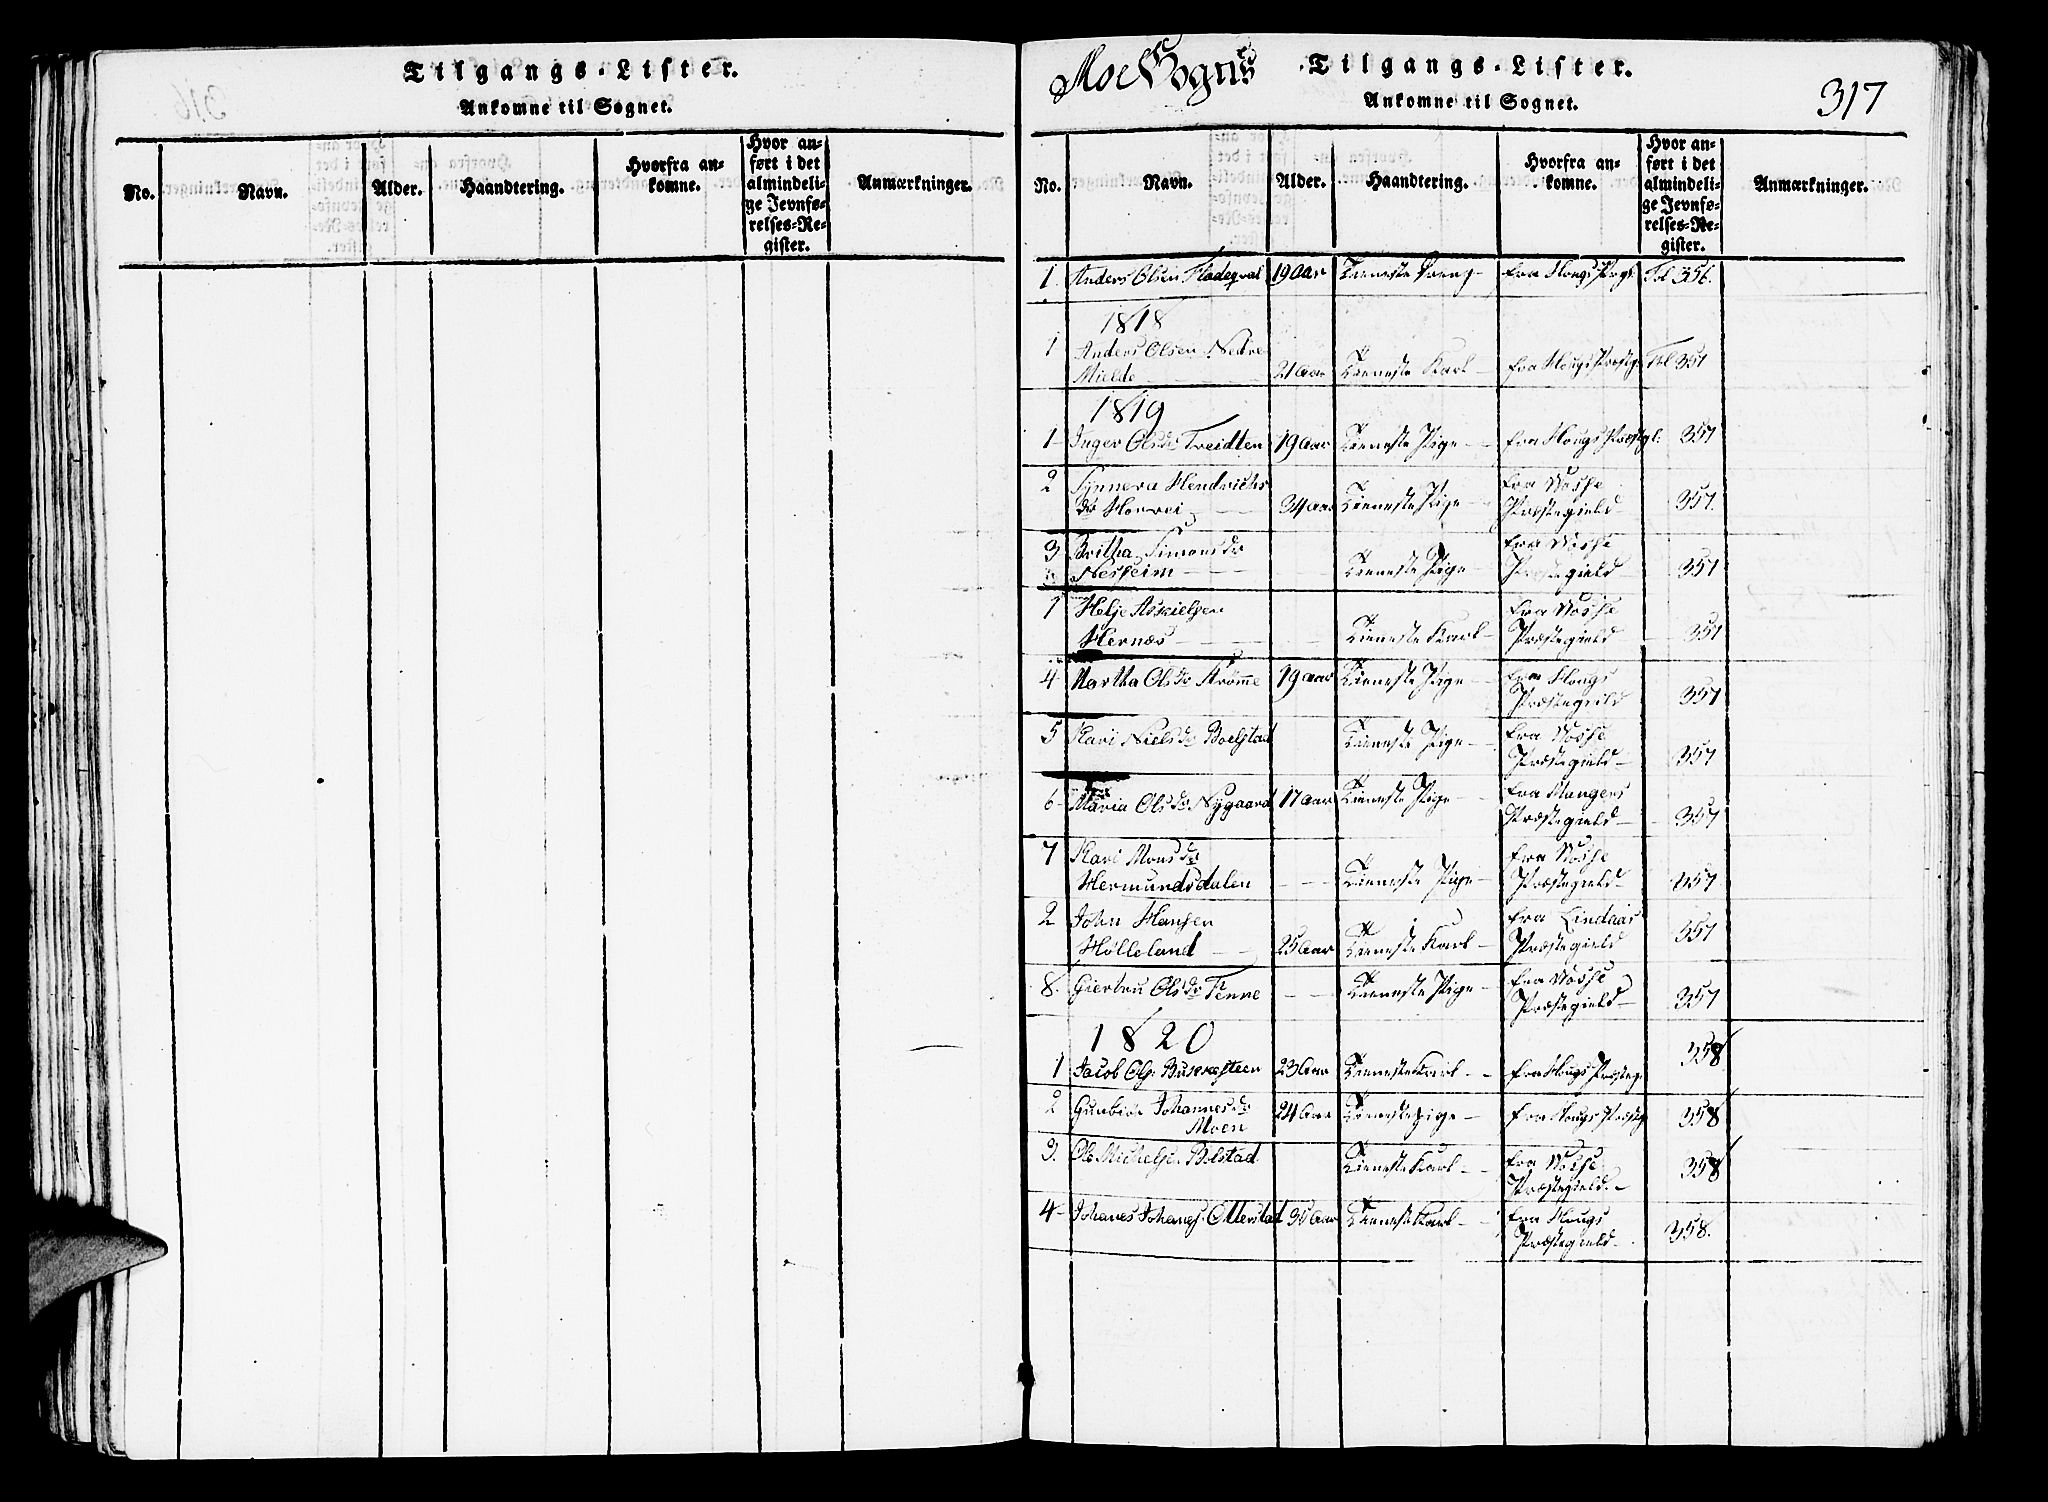 Tilgangs-Lister.
Ankomne til Sognet.
No. Navn. Alder. Haandtering. Hvorfra an-
komne. Hvor an-
ført i det
almindeli-
ge Jevnfø-
relses-Re-
gister. Anmærkninger.
Moe Sogns Tilgangs-Lister. 317
Ankomne til Sognet.
No. Navn. Alder. Haandtering. Hvorfra an-
komne. Hvor an-
ført i det
almindeli-
ge Jevnfø-
relses-Re-
gister. Anmærkninger.
1. Anders Olsen 19 aar Tieneste Dreng fra Hougs Prgl Fol 356.
1818
1 Anders Olsen Nedre
Mielde 21 aar Tieneste Karl fra Hougs Præstg. Fol 357
1819
1 Inger Olsdr Treidten 19 aar Tieneste Pige fra Hougs Præstgl: 357
2 Synneva Hendrichs fra Vosse
dr Horvei 34 aar Tieneste Pige Præstegield 357.
3 Britha Simonsdr fra Vosse
Nesheim Tieneste Pige Præstegield 357
1 Helje Askielsen fra Vosse
Hernæs Tieneste Karl Præstegield 357
4 Martha Olsdr Strømme 19 aar Tieneste Pige fra Hougs
Præstegield 357
5 Kari Nielsdr Boelstad Tieneste Pige fra Vosse
Præstegield 357
6 Maria Olsdr Nygaard 17 aar Tieneste Pige fra Mangers
Præstegield 357
7 Kari Monsdr fra Vosse
Hermundsdalen Tieneste Pige Præstegield 357
2 John Hansen fra Lindaas
Hølleland 25 aar Tieneste Karl Præstegield 357
8. Giertru Olsdr Tenne Tieneste Pige fra Vosse
Præstegield 357
1820
1 Jacob Ols: Bukkesteen 23 aar Tieneste Karl fra Hougs Præsteg. 358
2 Gunbiør Johannesdr
Moen 24 aar Tienestepige fra Hougs Præsteg 358
3. Ole Michels. Bolstad Tieneste Karl fra Vosse
Præstegield 358
4 Johanes Johanes. Otterstad 35 aar Tieneste Karl fra Hougs
Præstegield 358.